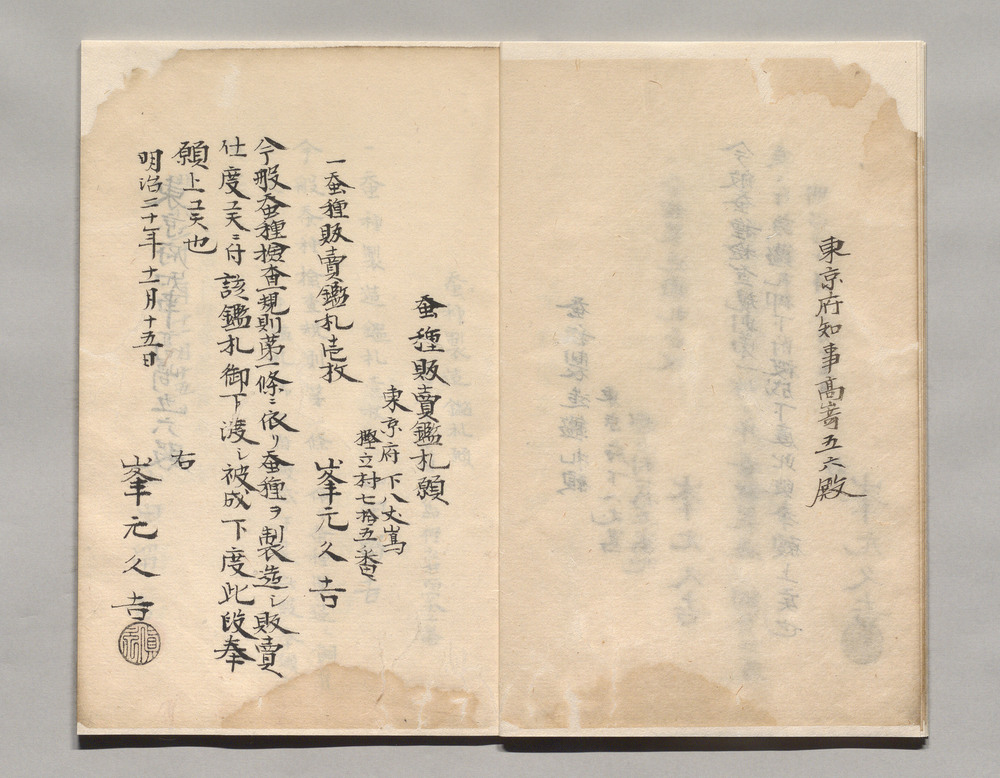 東京府知事髙嵜五六殿
蚕種販賣鑑札願
東京府下八丈嶌
樫立村七拾五番
峯元久吉
一蚕種販賣鑑札壱枚
今般蚕種検査規則第一條ニ依リ蚕種ヲ製造シ販賣
仕度候ニ付該鑑札御下渡シ被成下度此段奉
願上候也
右
明治二十年十一月十五日
峯元久吉